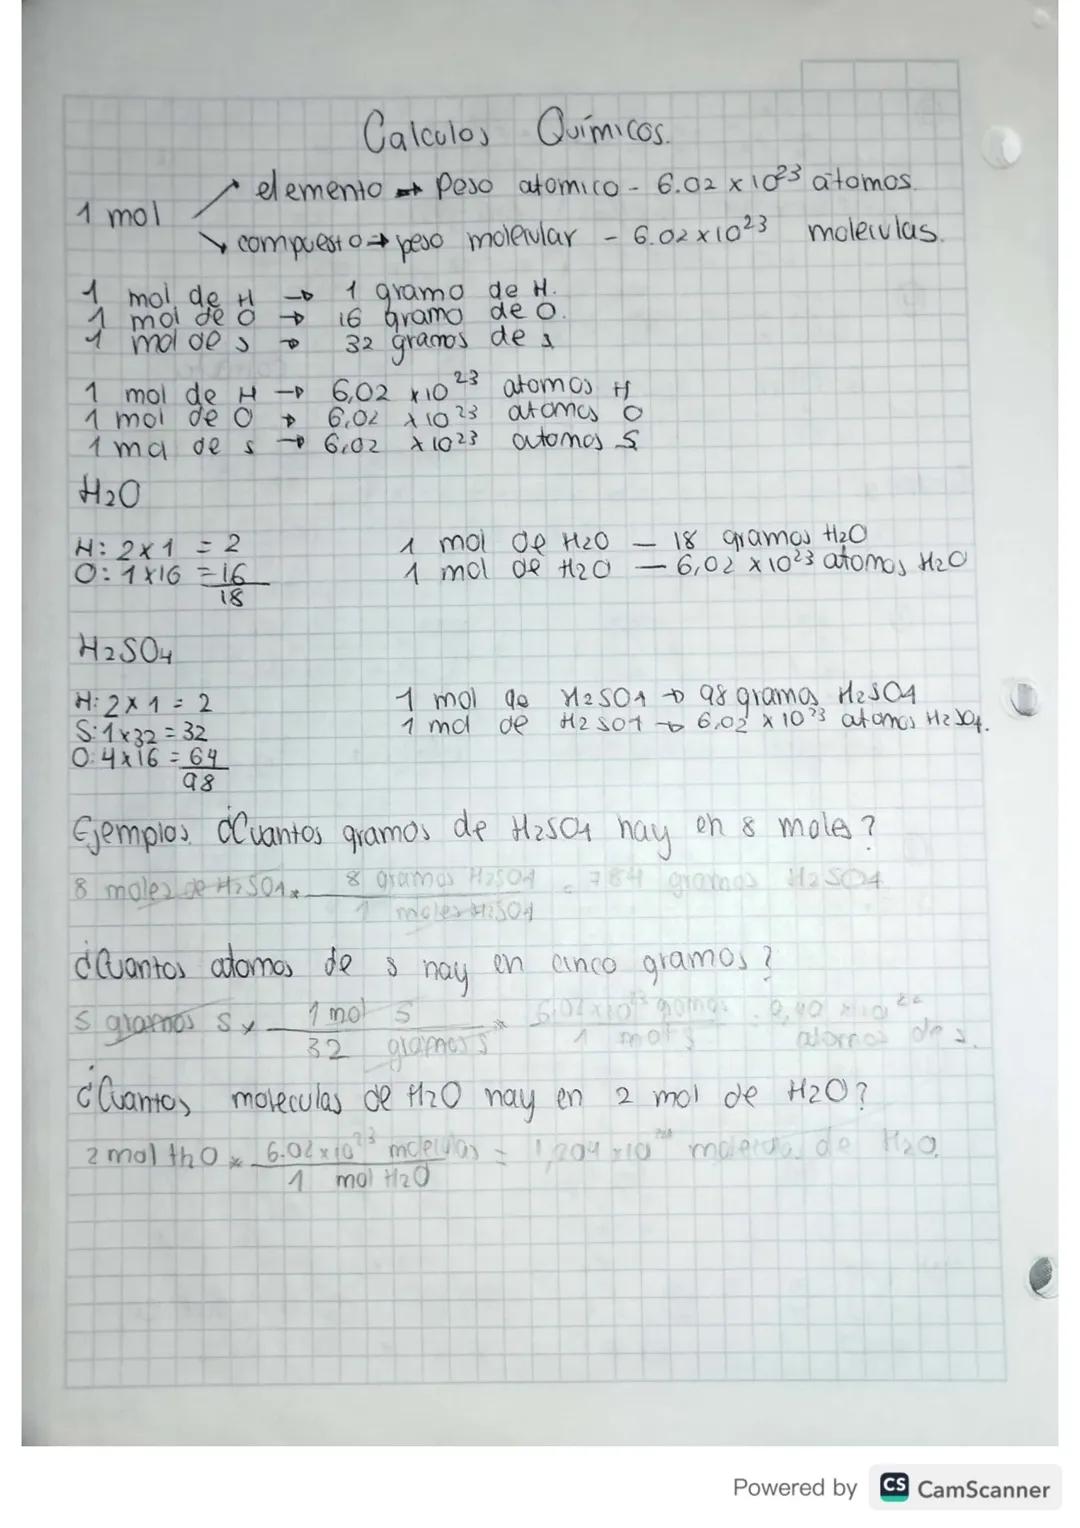 Calculos Químicos.
1 mol
elemento → Peso atomico - 6.02 x 10²³ átomos.
compuesto → peso molecular - 6.02x10²³ moleculas.
1 mol de H → 1 gramo de H.
1 mol de O → 16 gramo de O.
1 mol de s → 32 gramos de s
1 mol de H → 6,02 x10²³ atomos H
1 mol de O → 6,02 x10²³ atomos O
1 mol de s → 6,02 x10²³ atomos S
H₂O
H: 2x1 = 2 1 mol de H2O — 18 gramos H2O
O: 1x16 = 16 1 mol de H2O — 6,02 x10²³ atomos H2O
18
H₂SO₄
H: 2x1 = 2 1 mol de H2SO4 → 98 gramos H2SO4
S: 1x32 = 32 1 mol de H2SO4 → 6,02 x 10²³ atomos H2SO4.
O: 4x16 = 64
98
Ejemplos. ¿Cuantos gramos de H2SO4 hay en 8 moles?
8 moles de H2SO4 x 8 gramos H2SO4 = 784 gramos H2SO4
1 moles H2SO4
¿Cuantos atomos de s hay en cinco gramos?
5 gramos S x 1 mol S x 6,02x10²³ = 9,40 x10²²
32 gramos s 1 mol s atomos de s.
¿Cuantos moleculas de H2O hay en 2 mol de H2O?
2 mol H2O x 6.02x10²³ moleculas = 1,204 x10 de H2O.
1 mol H2O
Powered by CS CamScanner